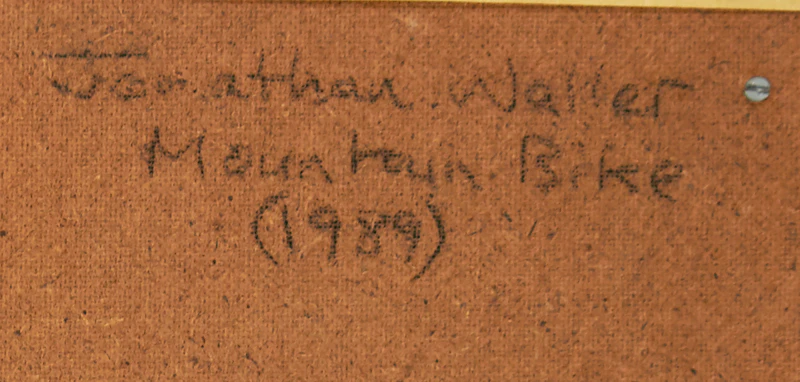 Jonathan Waller
Mountain Bike
(1989)